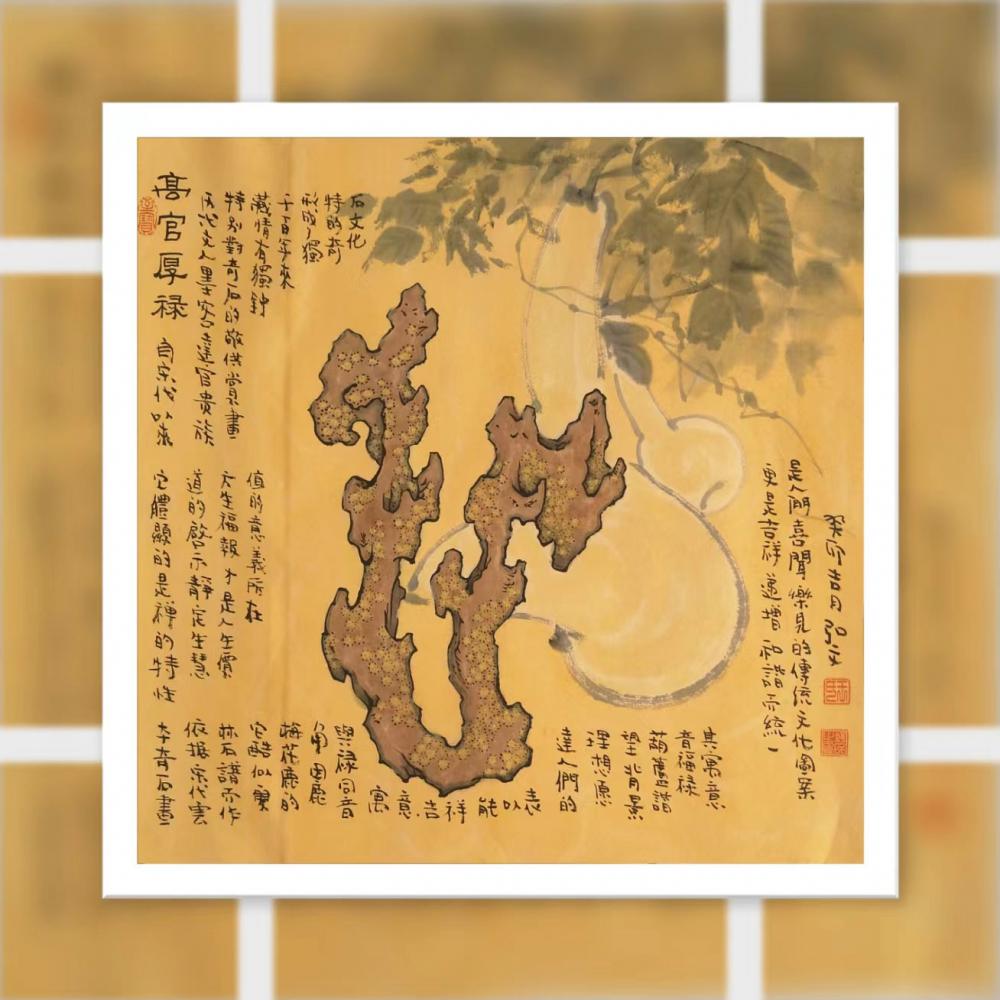 高官厚禄
自宋代以來
历代文人墨客達官貴族
特别對奇石的敬供賞畫
藏情有獨鍾
千百年來
形成了獨
特的奇
石文化
它體顯的是禪的特性
道的啟示靜定生慧
大生福報才是人生價
值的意義所在
本奇石畫
依據宋代雲
林石譜而作
它酷似
梅花鹿的
角因鹿
與禄同音
寓意吉祥能以表
達人們的
理想願
望背景
葫蘆諧
音福禄
其寓意
更是吉祥
是人們喜聞樂見的傳統文化圖案
癸卯吉月